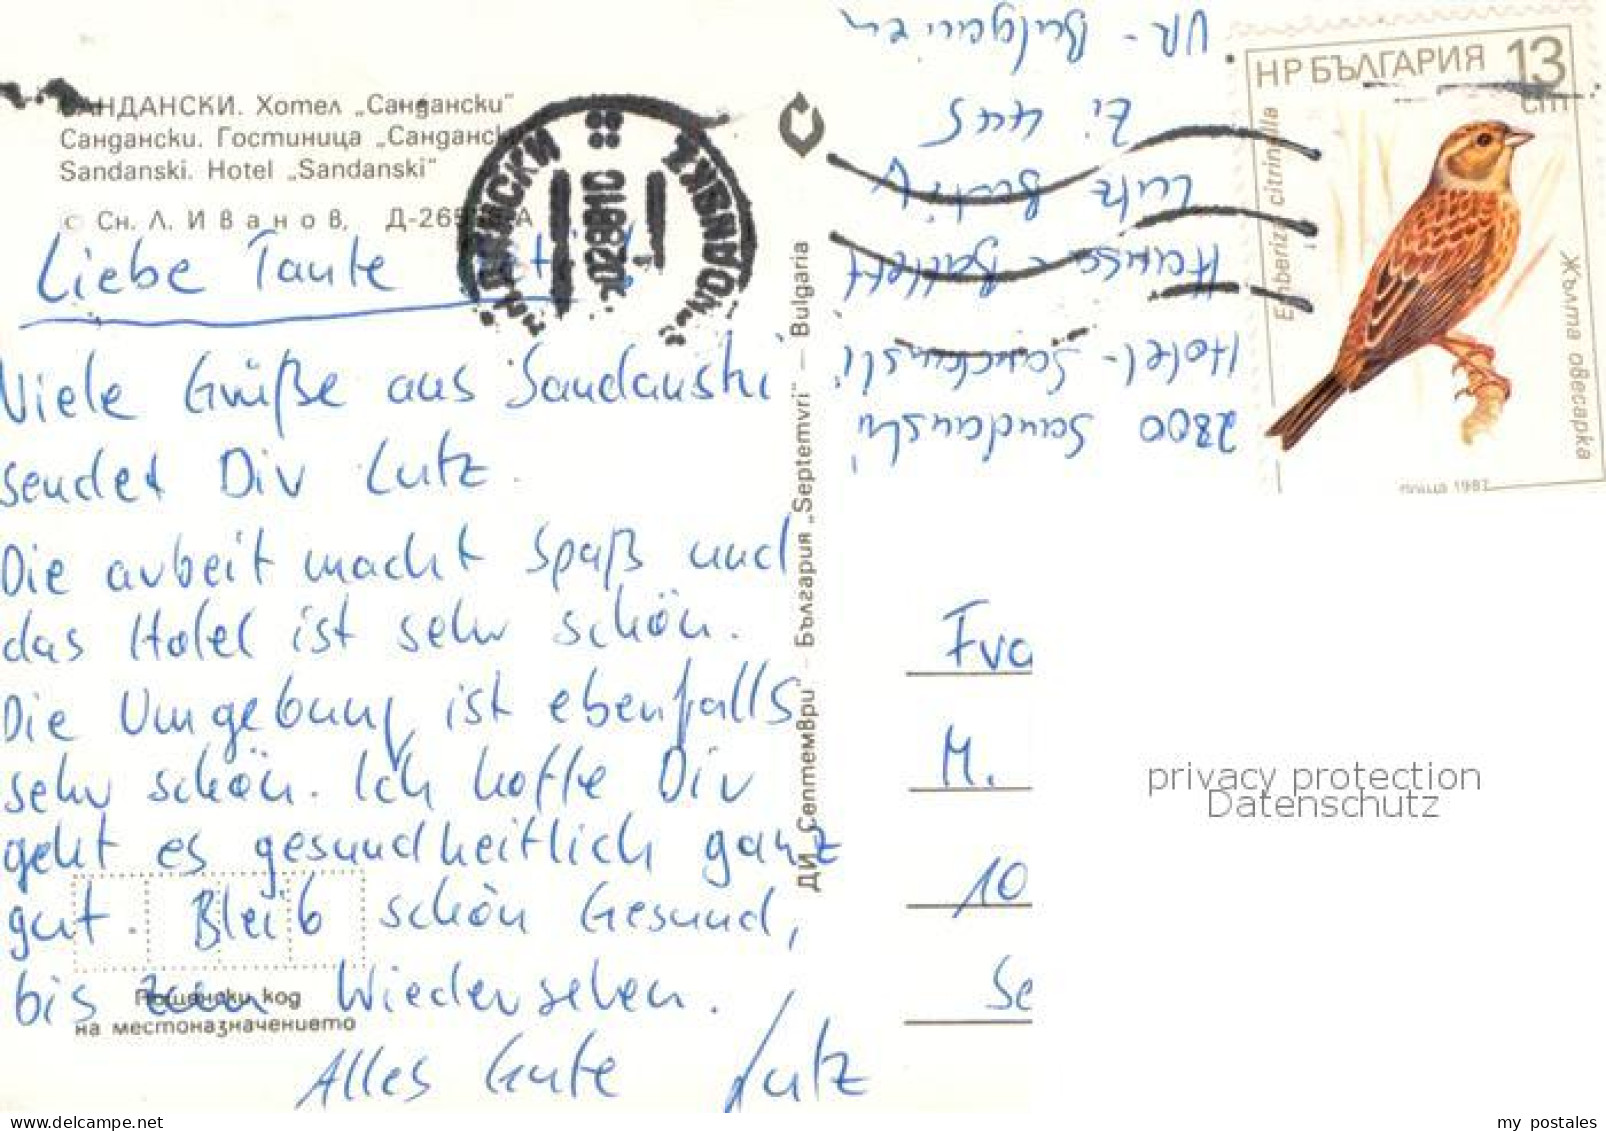 САНДАНСКИ. Хотел „Сандански“
Сандански. Гостиница „Сандански
Sandanski. Hotel „Sandanski“
© Сн. Л. Иванов, Д-26
Liebe Tante
Viele Grüße aus Sandanski
sendet Dir Lutz.
Die arbeit macht Spaß und
das Hotel ist sehr schön.
Die Umgebung ist ebenfalls
sehr schön. Ich hoffe Dir
geht es gesundheitlich ganz
gut. Bleib schön Gesund,
bis zum Wiedersehen.
Alles Gute Lutz
Пощенски код
на местоназначението
ДИ „Септември“ — България „Septemvri“ — Bulgaria
2800 Sandanski
Hotel-Sandanski
Hansa-Ballett
Lutz
Zi 445
VR-Bulgarien
НР БЪЛГАРИЯ 13
cm
Emberiza citrinella
Жълта овесарка
поща 1987
Fra
M.
10
Se
privacy protection
Datenschutz
www.delcampe.net
my_postales